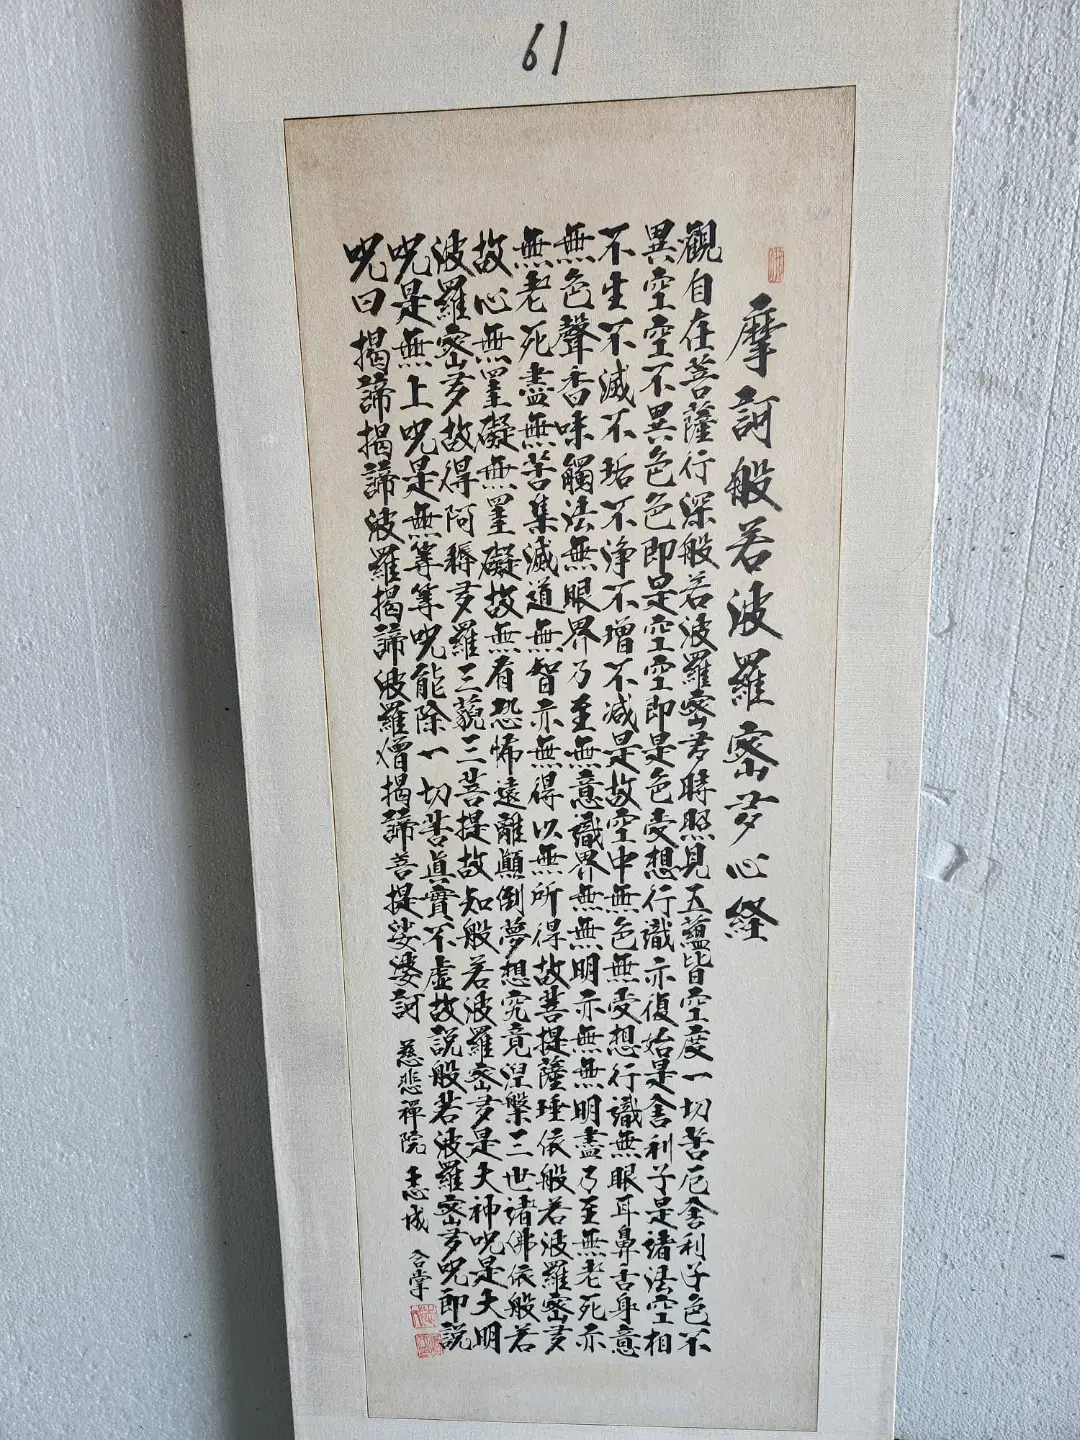 61
摩訶般若波羅密多心経
觀自在菩薩行深般若波羅密多時照見五蘊皆空度一切苦厄舍利子色不
異空空不異色色即是空空即是色受想行識亦復始是舍利子是諸法空相
不生不滅不垢不淨不增不減是故空中無色無受想行識無眼耳鼻舌身意
無色聲香味觸法無眼界乃至無意識界無無明亦無無明盡乃至無老死亦
無老死盡無苦集滅道無智亦無得以無所得故菩提薩埵依般若波羅密多
故心無罣礙無罣礙故無有恐怖遠離顛倒夢想究竟涅槃三世諸佛依般若
波羅密多故得阿耨多羅三藐三菩提故知般若波羅密多是大神呪是大明
呪是無上呪是無等等呪能除一切苦眞實不虛故説般若波羅密多呪即説
呪曰揭諦揭諦波羅揭諦波羅僧揭諦菩提娑婆訶 慈悲禪院 成 合掌